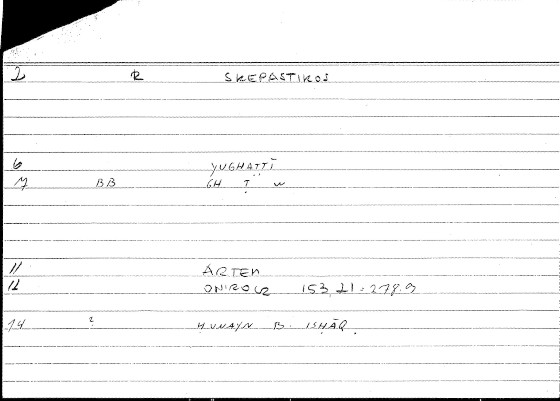 2 R SKEPASTIKOS
6 YUGHAṬṬĪ
7 BB GH Ṭ W
11 ARTEM
12 ONIROCR 153,21 = 278.9
14 ? ḤUNAYN B. ISḤĀQ